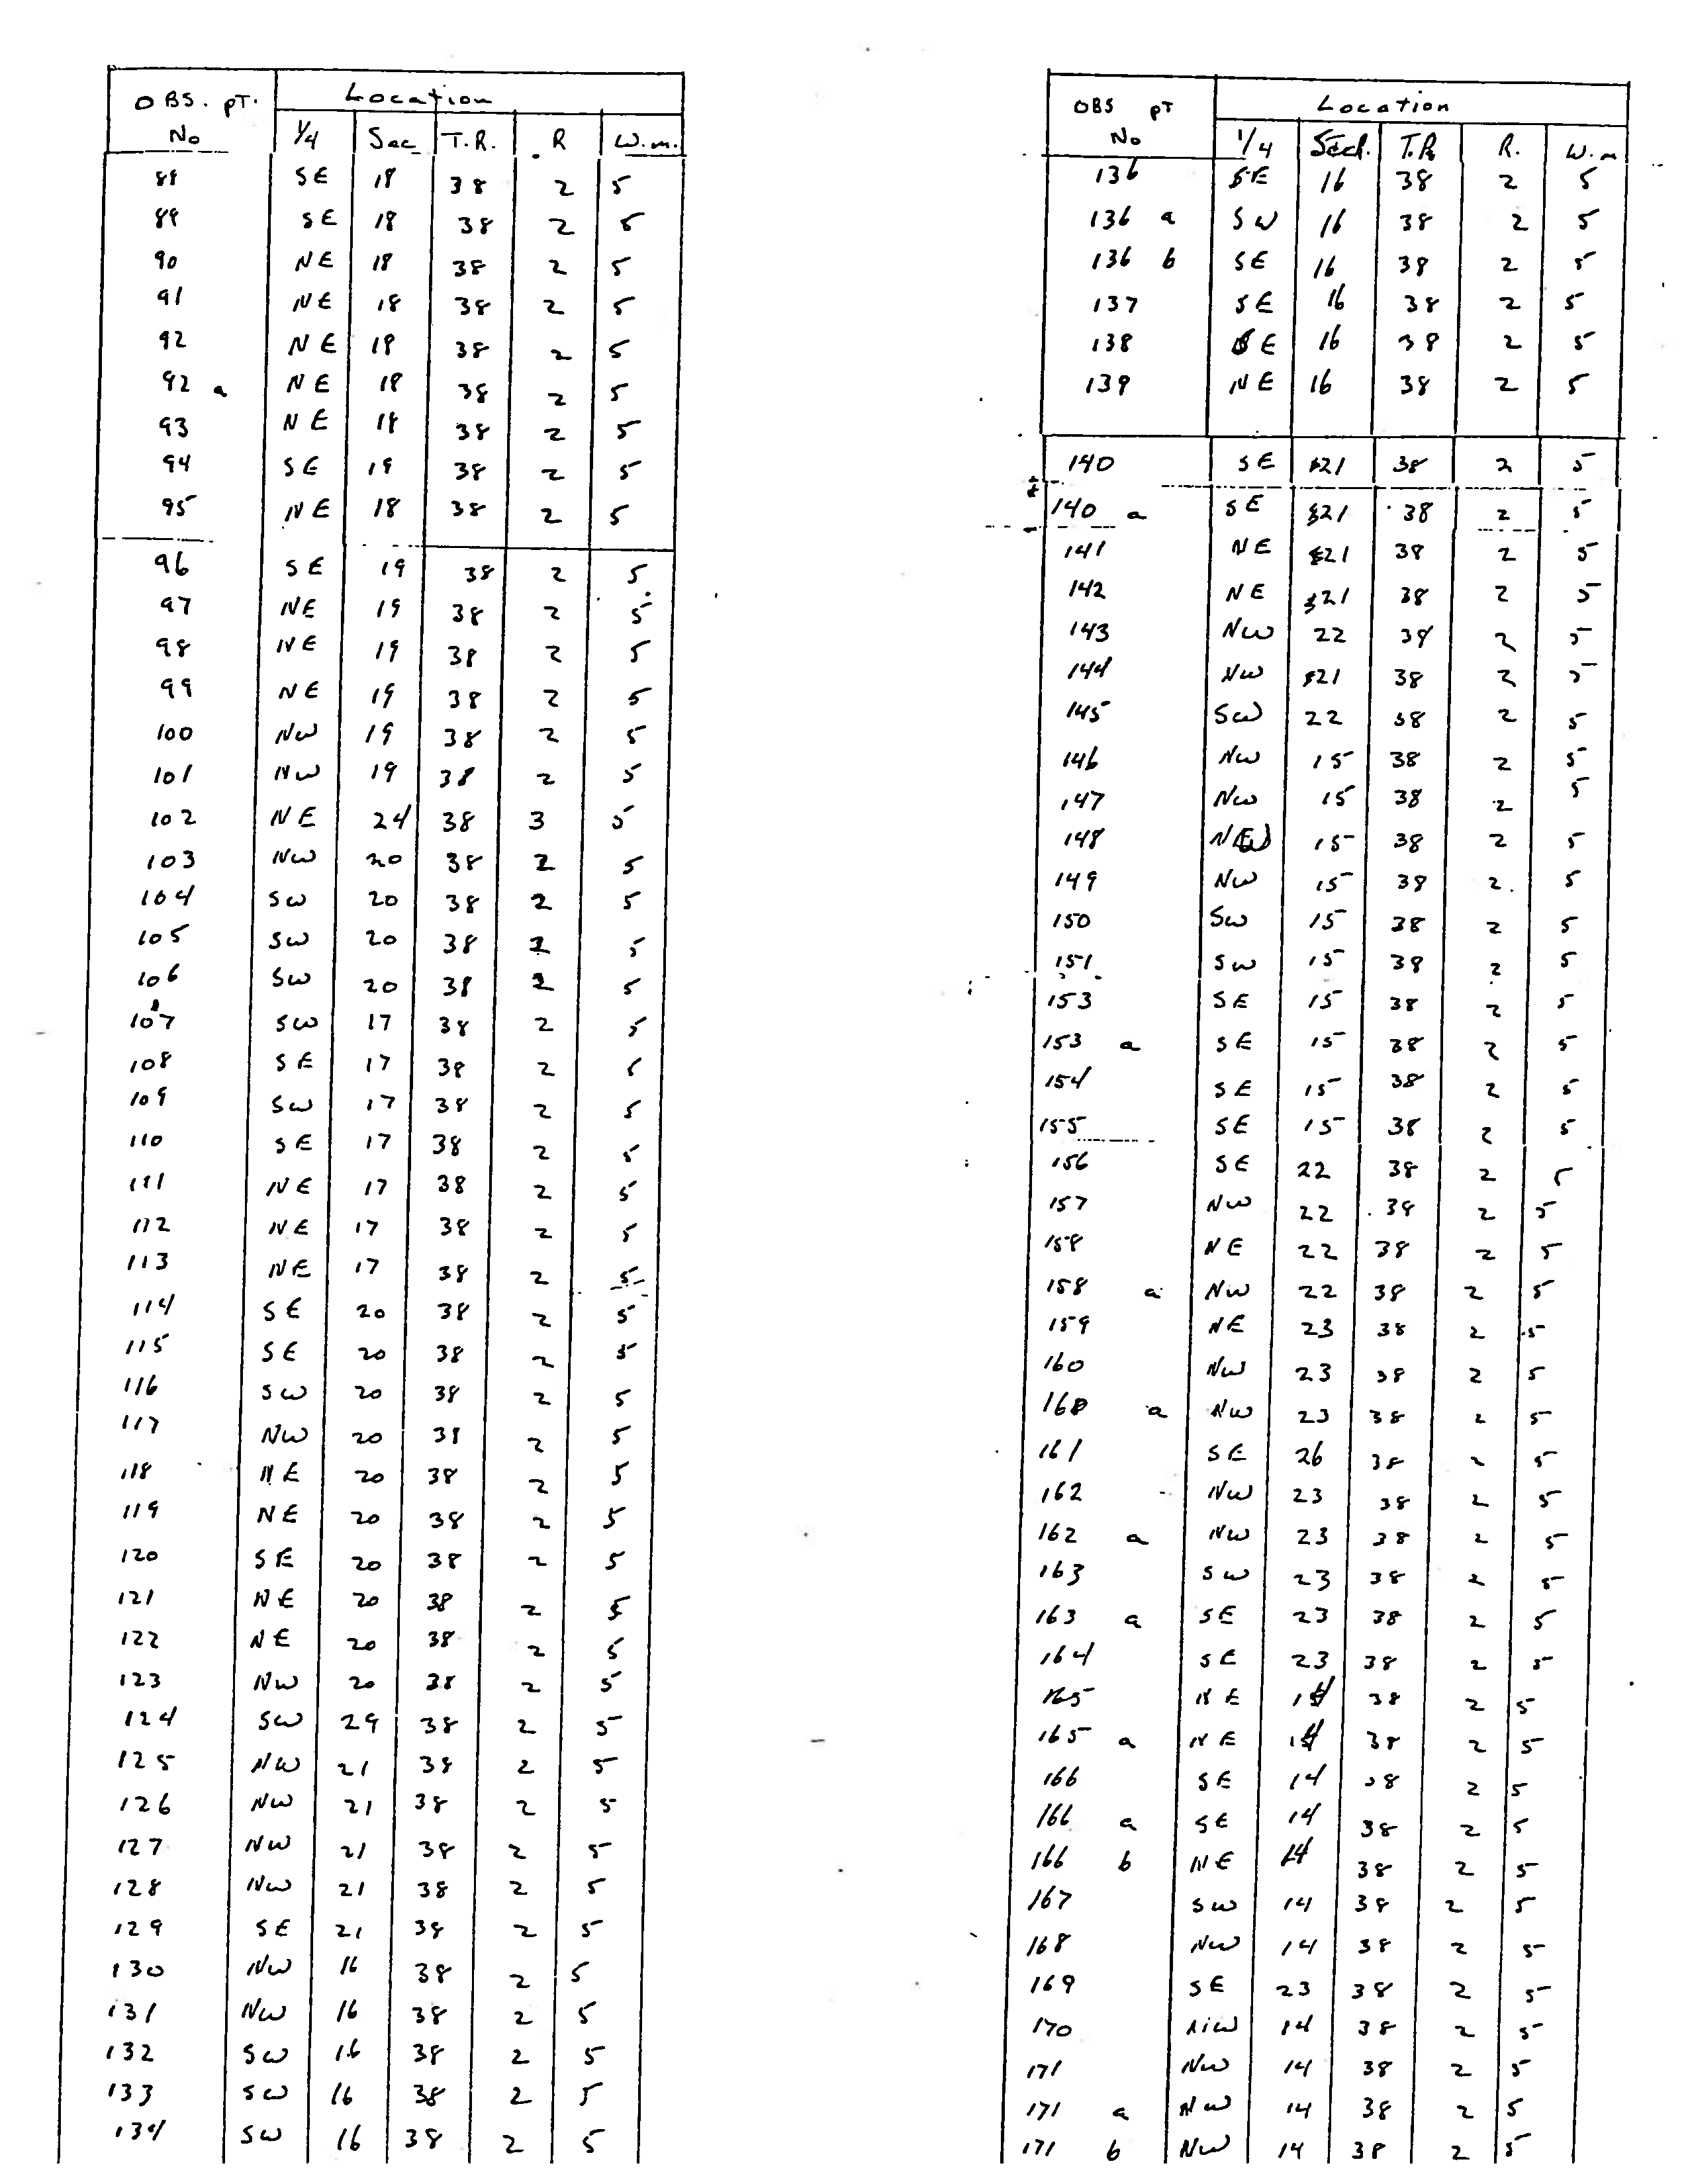 OBS. PT. Location
No 1/4 Sec T.R. R W.m.
88 SE 18 38 2 5
89 SE 18 38 2 5
90 NE 18 38 2 5
91 NE 18 38 2 5
92 NE 18 38 2 5
92 a NE 18 38 2 5
93 NE 18 38 2 5
94 SE 19 38 2 5
95 NE 18 38 2 5
96 SE 19 38 2 5
97 NE 19 38 2 5
98 NE 19 38 2 5
99 NE 19 38 2 5
100 NW 19 38 2 5
101 NW 19 38 2 5
102 NE 24 38 3 5
103 NW 20 38 2 5
104 SW 20 38 2 5
105 SW 20 38 2 5
106 SW 20 38 2 5
107 SW 17 38 2 5
108 SE 17 38 2 5
109 SW 17 38 2 5
110 SE 17 38 2 5
111 NE 17 38 2 5
112 NE 17 38 2 5
113 NE 17 38 2 5
114 SE 20 38 2 5
115 SE 20 38 2 5
116 SW 20 38 2 5
117 NW 20 38 2 5
118 NE 20 38 2 5
119 NE 20 38 2 5
120 SE 20 38 2 5
121 NE 20 38 2 5
122 NE 20 38 2 5
123 NW 20 38 2 5
124 SW 29 38 2 5
125 NW 21 38 2 5
126 NW 21 38 2 5
127 NW 21 38 2 5
128 NW 21 38 2 5
129 SE 21 38 2 5
130 NW 16 38 2 5
131 NW 16 38 2 5
132 SW 16 38 2 5
133 SW 16 38 2 5
134 SW 16 38 2 5
OBS PT Location
No 1/4 Sect. T.R. R. W.m
136 SE 16 38 2 5
136 a SW 16 38 2 5
136 b SE 16 38 2 5
137 SE 16 38 2 5
138 SE 16 38 2 5
139 NE 16 38 2 5
140 SE 21 38 2 5
140 a SE 21 38 2 5
141 NE 21 38 2 5
142 NE 21 38 2 5
143 NW 22 38 2 5
144 NW 21 38 2 5
145 SW 22 38 2 5
146 NW 15 38 2 5
147 NW 15 38 2 5
148 NW 15 38 2 5
149 NW 15 38 2 5
150 SW 15 38 2 5
151 SW 15 38 2 5
153 SE 15 38 2 5
153 a SE 15 38 2 5
154 SE 15 38 2 5
155 SE 15 38 2 5
156 SE 22 38 2 5
157 NW 22 38 2 5
158 NE 22 38 2 5
158 a NW 22 38 2 5
159 NE 23 38 2 5
160 NW 23 38 2 5
160 a NW 23 38 2 5
161 SE 26 38 2 5
162 NW 23 38 2 5
162 a NW 23 38 2 5
163 SW 23 38 2 5
163 a SE 23 38 2 5
164 SE 23 38 2 5
165 NE 14 38 2 5
165 a NE 14 38 2 5
166 SE 14 38 2 5
166 a SE 14 38 2 5
166 b NE 14 38 2 5
167 SW 14 38 2 5
168 NW 14 38 2 5
169 SE 23 38 2 5
170 NW 14 38 2 5
171 NW 14 38 2 5
171 a NW 14 38 2 5
171 b NW 14 38 2 5